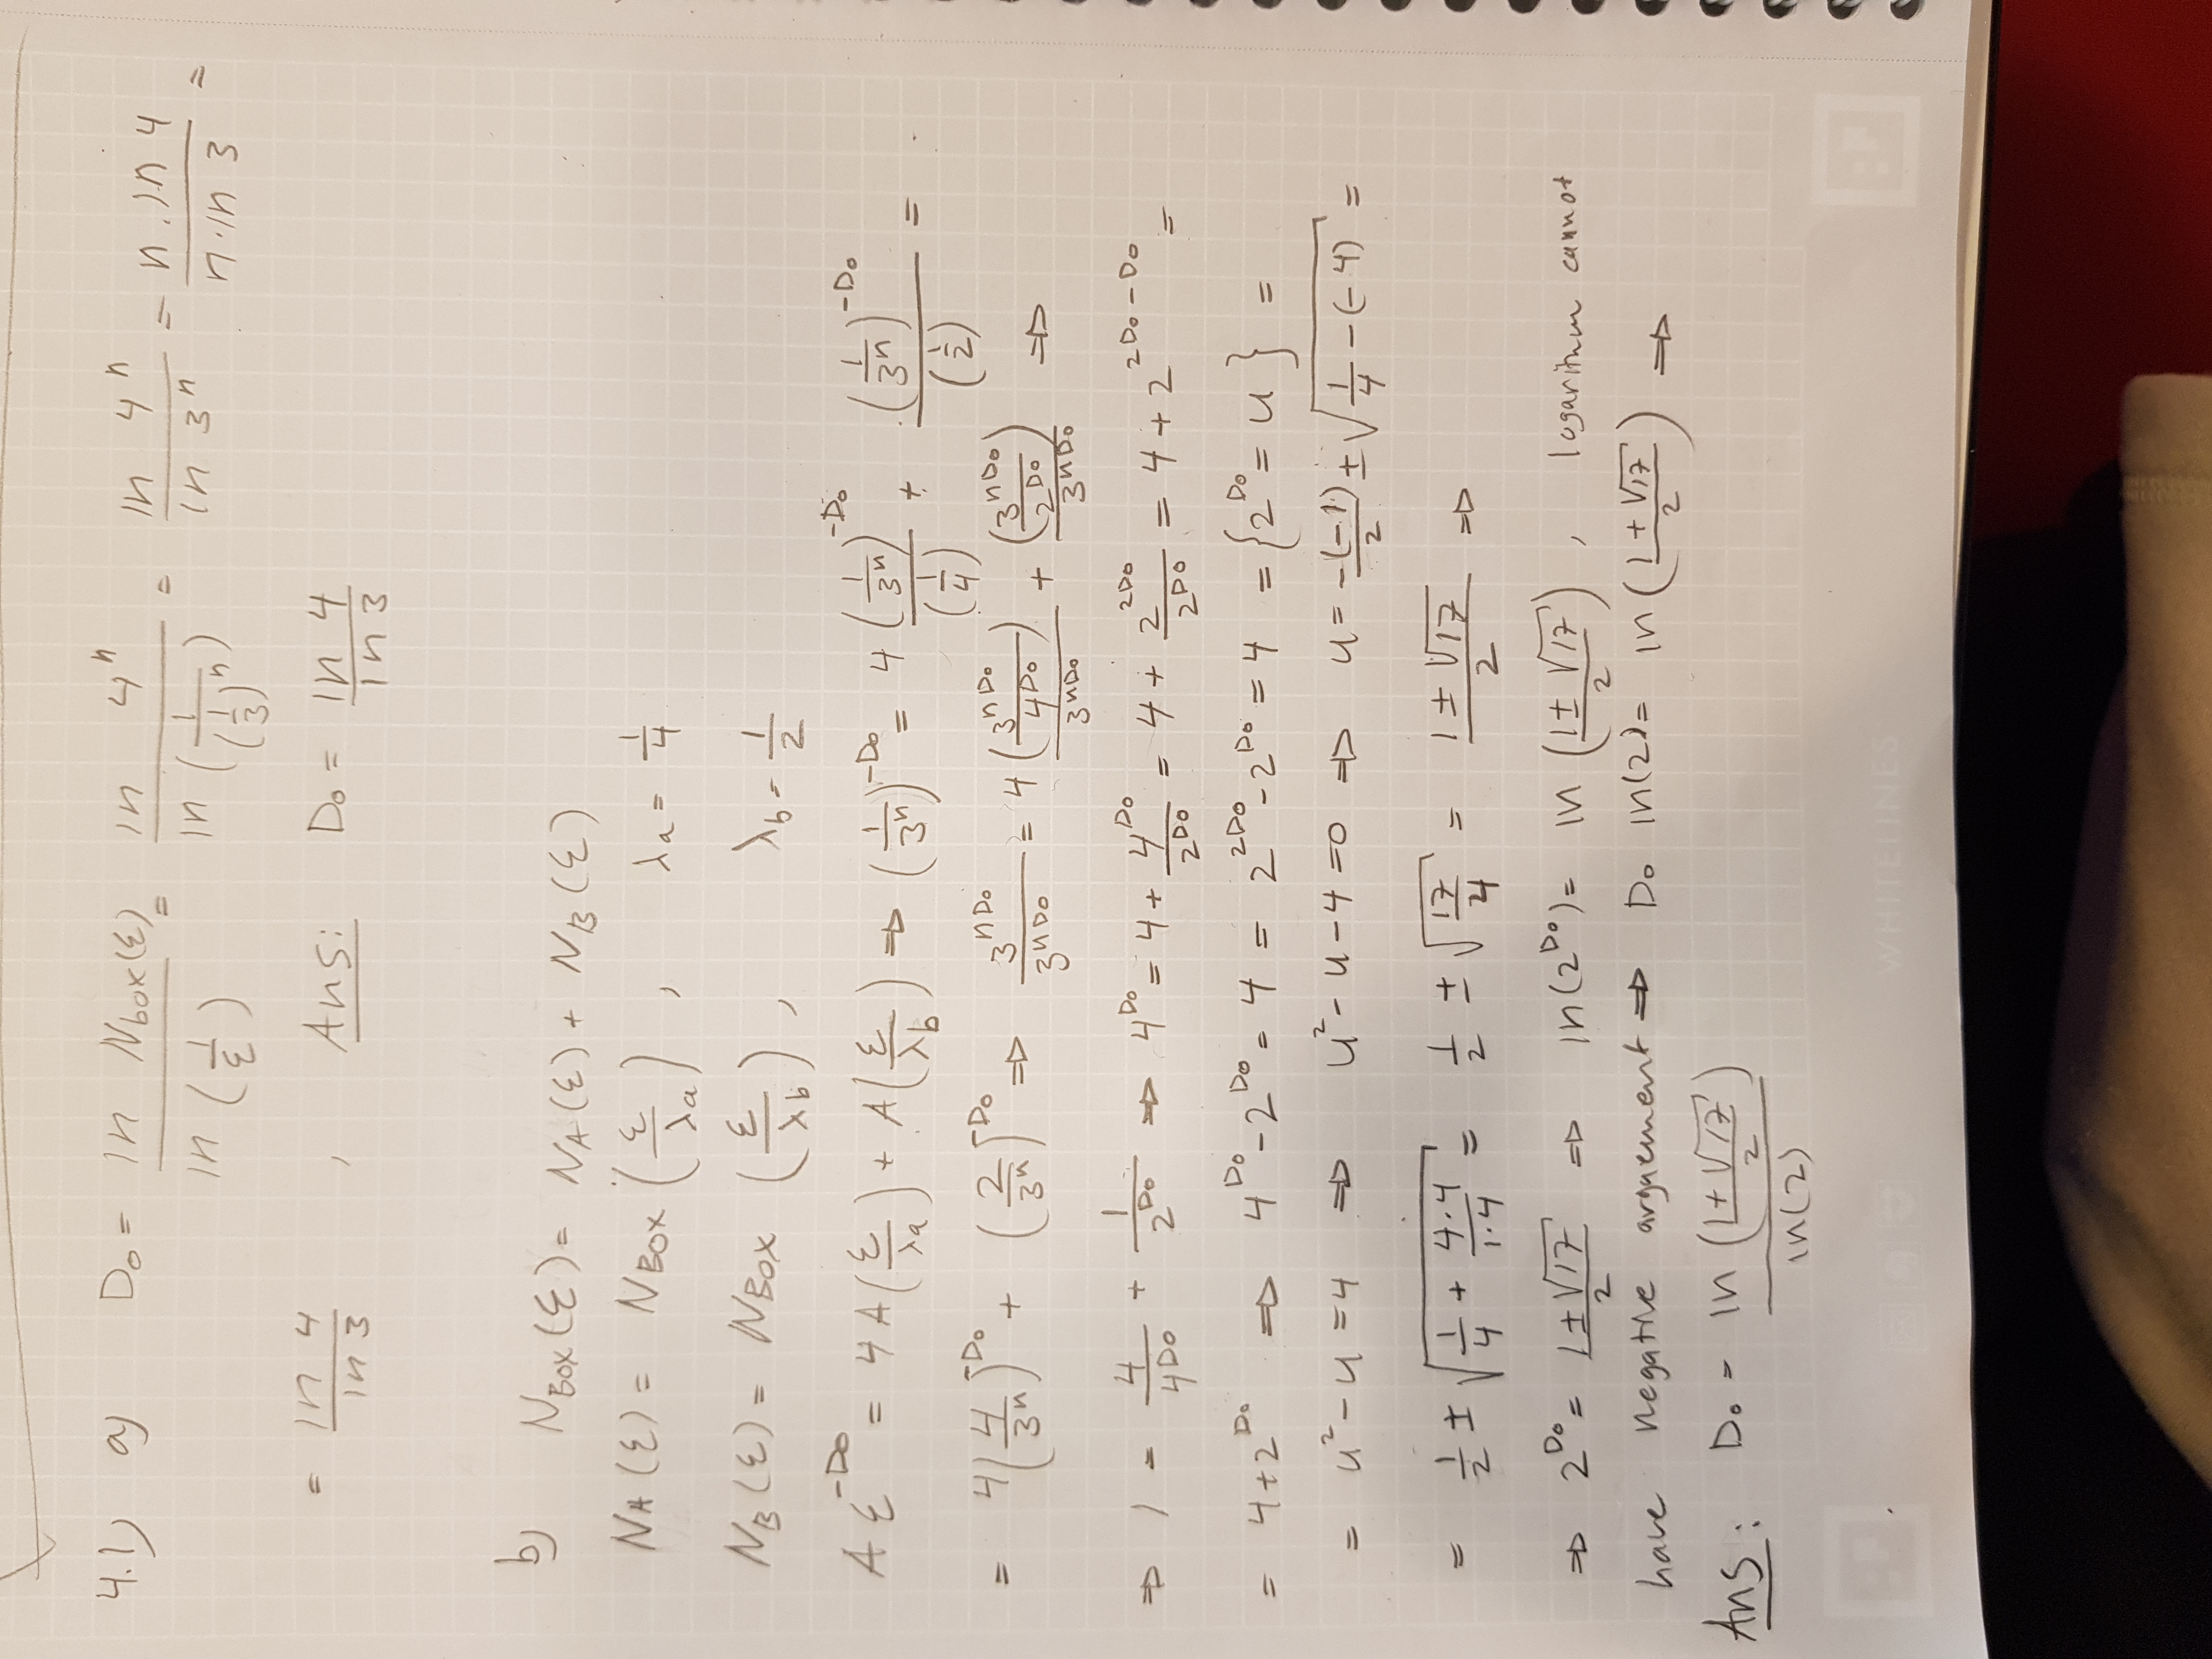 4.1) a) D₀ = ln N_box(ε) / ln (1/ε) = ln 4ⁿ / ln (1/(1/3)ⁿ) = ln 4ⁿ / ln 3ⁿ = n·ln 4 / n·ln 3 =
= ln 4 / ln 3 , Ans: D₀ = ln 4 / ln 3
b) N_Box(ε) = N_A(ε) + N_B(ε)
N_A(ε) = N_Box (ε/λa) , λa = 1/4
N_B(ε) = N_Box (ε/λb) , λb = 1/2
A ε^(-D₀) = 4 A(ε/λa) + A(ε/λb) ⇒ (1/3ⁿ)^(-D₀) = 4 (1/3ⁿ)^(-D₀) / (1/4) + (1/3ⁿ)^(-D₀) / (1/2) =
= 4(4/3ⁿ)^(-D₀) + (2/3ⁿ)^(-D₀) ⇒ 3^(nD₀) / 3^(nD₀) = 4 (3^(nD₀) / 4^(D₀)) / 3^(nD₀) + (3^(nD₀) / 2^(D₀)) / 3^(nD₀) ⇒
⇒ 1 = 4 / 4^(D₀) + 1 / 2^(D₀) ⇒ 4^(D₀) = 4 + 4^(D₀) / 2^(D₀) = 4 + 2^(2D₀) / 2^(D₀) = 4 + 2^(2D₀-D₀) =
= 4+2^(D₀) ⇒ 4^(D₀) - 2^(D₀) = 4 = 2^(2D₀) - 2^(D₀) = 4 = {2^(D₀) = u} =
= u² - u = 4 ⇒ u² - u - 4 = 0 ⇒ u = -(-1)/2 ± √(1/4 - (-4)) =
= 1/2 ± √(1/4 + 4·4/1·4) = 1/2 ± √(17/4) = (1 ± √17)/2 ⇒
⇒ 2^(D₀) = (1 ± √17)/2 ⇒ ln(2^(D₀)) = ln ((1 ± √17)/2) , logaritum cannot
have negative arguement ⇒ D₀ ln(2) = ln ((1 + √17)/2) ⇒
Ans: D₀ = ln ((1+√17)/2) / ln(2)
WHITELINES